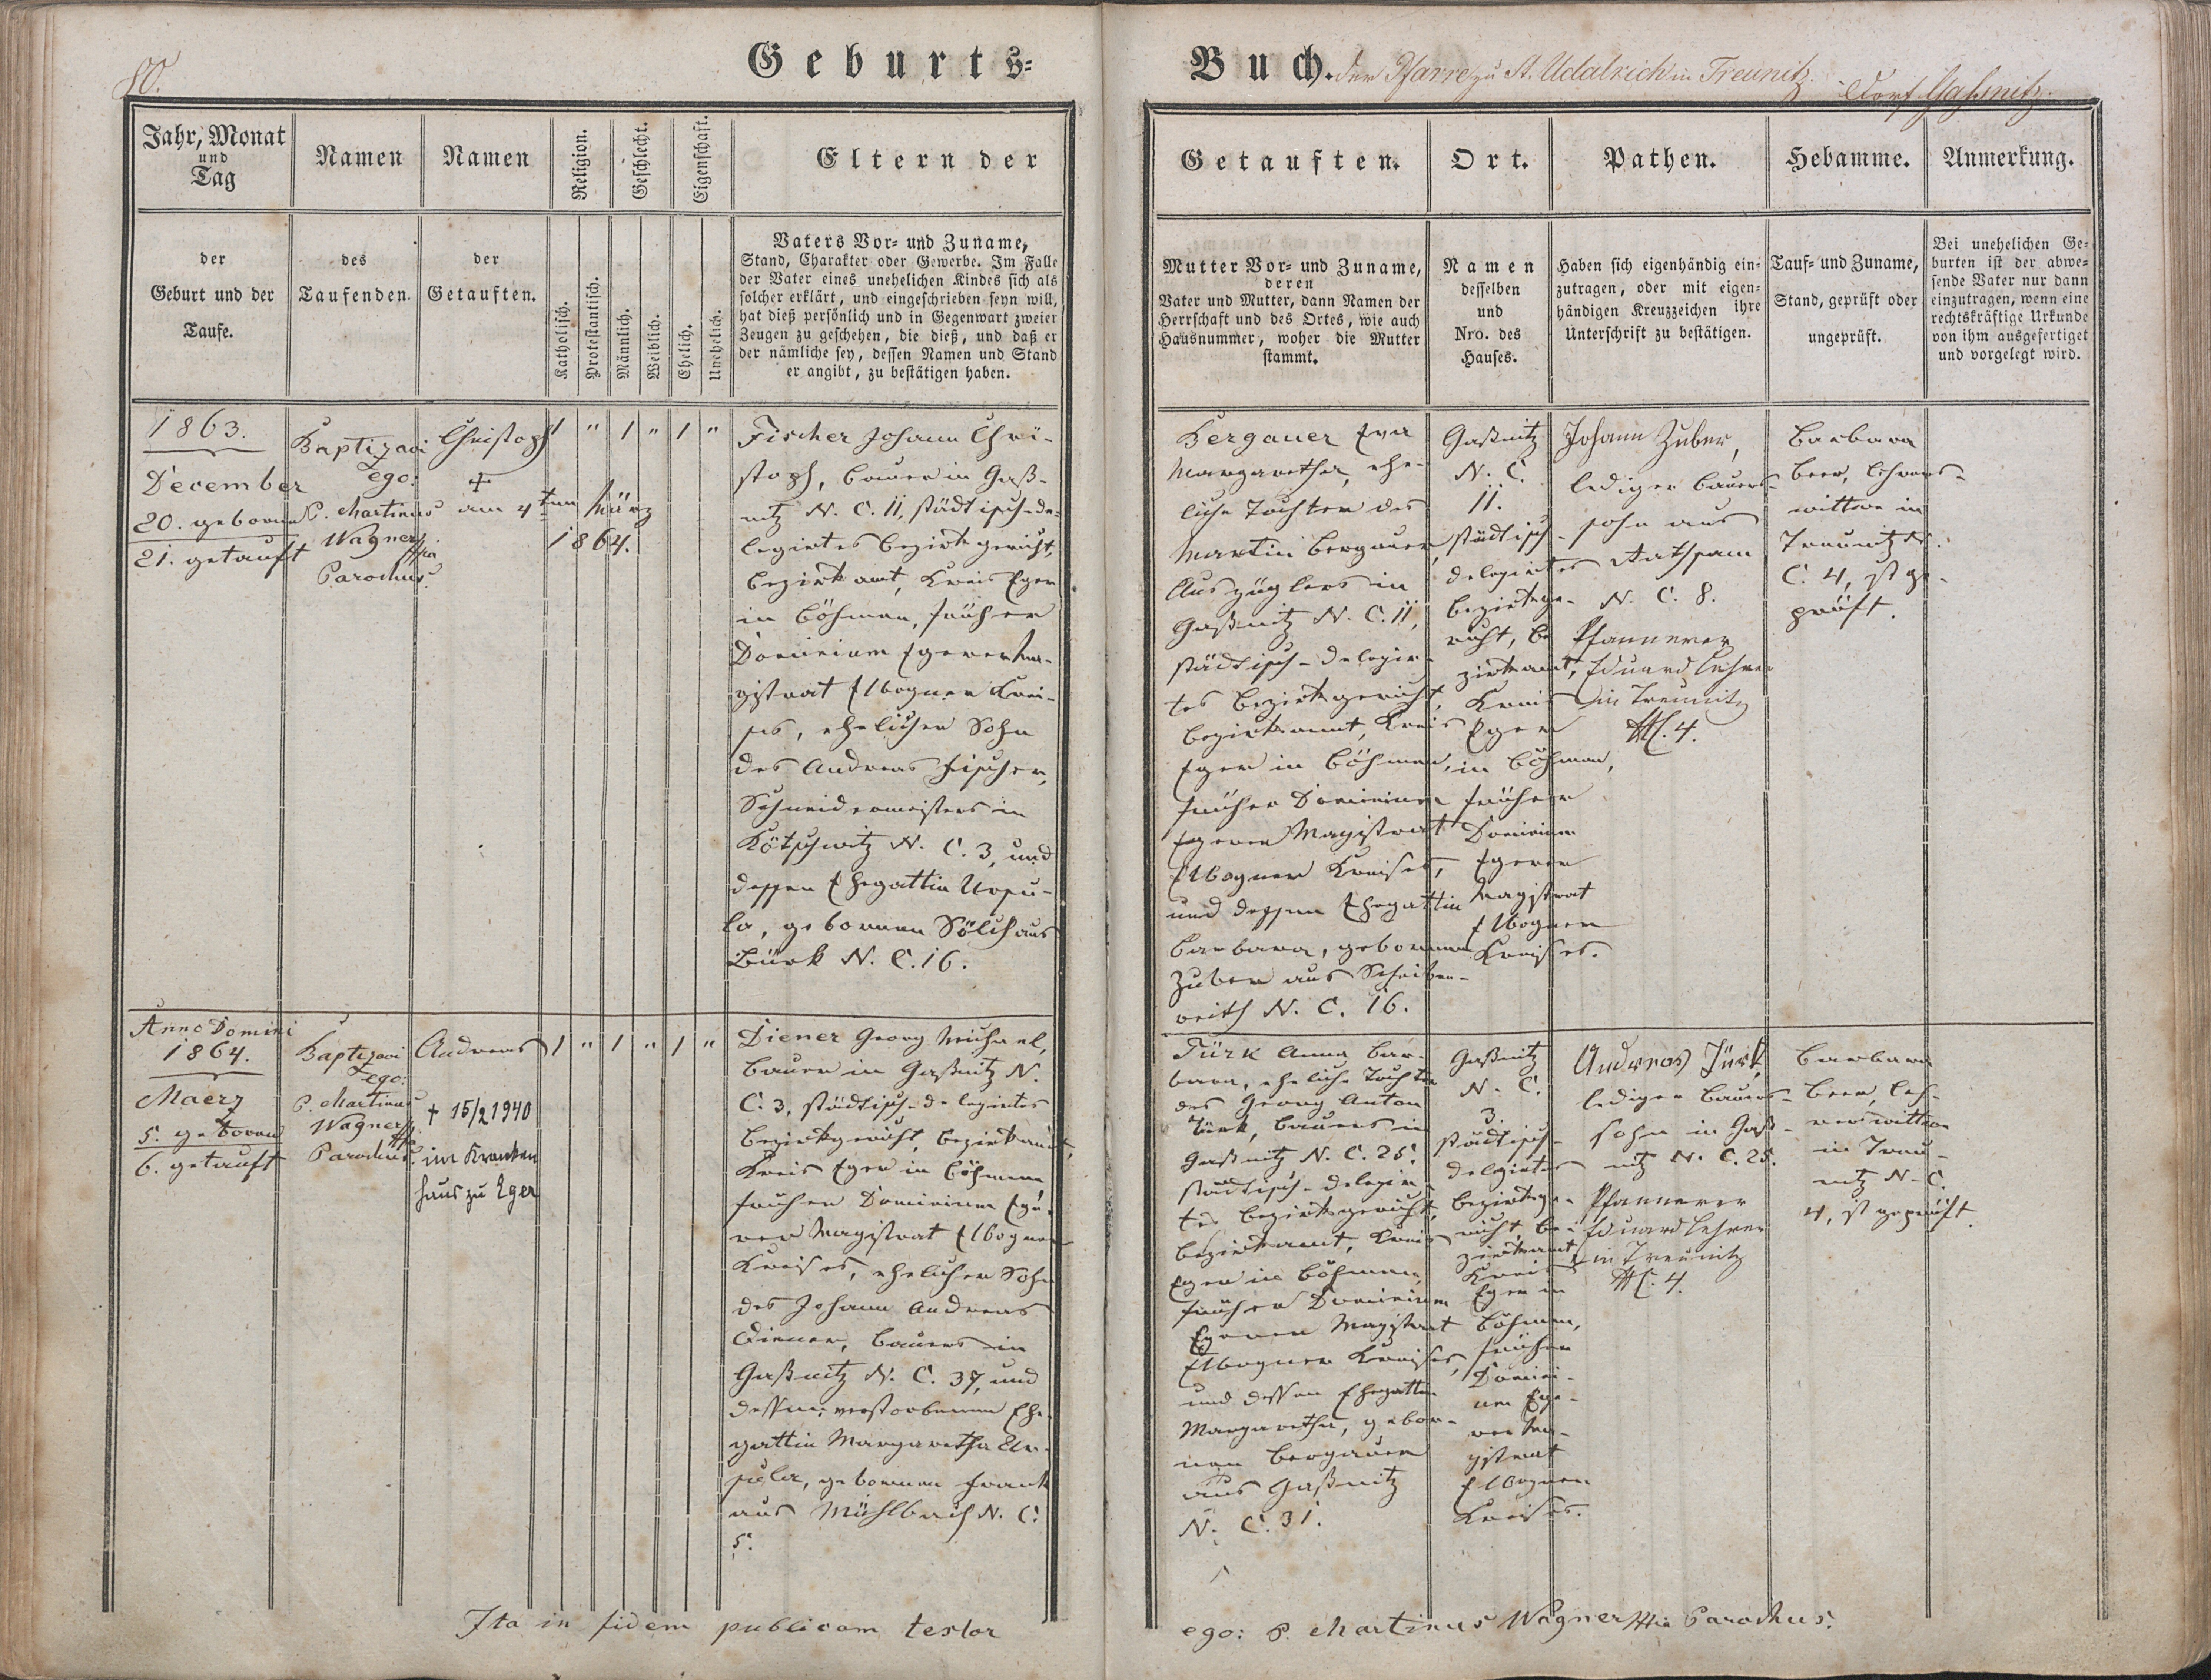 80.
Geburts-
Buch. der Pfarre zu St. Udalrich in Treunitz. Dorf Gaßnitz.
Jahr, Monat
und
Tag
der
Geburt und der
Taufe.
Namen
des
Taufenden.
Namen
der
Getauften.
Religion.
Katholisch.
Protestantisch.
Geschlecht.
Männlich.
Weiblich.
Eigenschaft.
Ehelich.
Unehelich.
Eltern der
Vaters Vor- und Zuname,
Stand, Charakter oder Gewerbe. Im Falle
der Vater eines unehelichen Kindes sich als
solcher erklärt, und eingeschrieben seyn will,
hat dieß persönlich und in Gegenwart zweier
Zeugen zu geschehen, die dieß, und daß er
der nämliche sey, dessen Namen und Stand
er angibt, zu bestätigen haben.
Getauften.
Mutter Vor- und Zuname,
deren
Vater und Mutter, dann Namen der
Herrschaft und des Ortes, wie auch
Hausnummer, woher die Mutter
stammt.
Ort.
Namen
desselben
und
Nro. des
Hauses.
Pathen.
Haben sich eigenhändig ein-
zutragen, oder mit eigen-
händigen Kreuzzeichen ihre
Unterschrift zu bestätigen.
Hebamme.
Tauf- und Zuname,
Stand, geprüft oder
ungeprüft.
Anmerkung.
Bei unehelichen Ge-
burten ist der abwe-
sende Vater nur dann
einzutragen, wenn eine
rechtskräftige Urkunde
von ihm ausgefertiget
und vorgelegt wird.
1863.
December
20. geboren
21. getauft
Baptizavi
ego:
P. Martinus
Wagner
Parochus.
Christoph
+
am 4ten März
1864.
1 " 1 " 1 "
Fischer Johann Chri-
stoph, Bauer in Gaß-
nitz N. C. 11, städtisch-de-
legirtes Bezirksgericht,
Bezirksamt, Kreis Eger
in Böhmen, früher
Dominium Egerer Ma-
gistrat Elbogner Krei-
ses, ehelicher Sohn
des Andreas Fischer,
Schneidermeisters in
Kötschwitz N. C. 3, und
dessen Ehegattin Ursu-
la, gebornen Sölch aus
Bürk N. C. 16.
Bergauer Eva
Margaretha, ehe-
liche Tochter des
Martin Bergauer,
Auszüglers in
Gaßnitz N. C. 11,
städtisch-delegir-
tes Bezirksgericht,
Bezirksamt, Kreis
Eger in Böhmen,
früher Dominium
Egerer Magistrat
Elbogner Kreises,
und dessen Ehegattin
Barbara, gebornen
Zuber aus Scheiben-
reith N. C. 16.
Gaßnitz
N. C.
11.
städtisch-
delegirtes
Bezirksge-
richt, Be-
zirksamt,
Kreis
Eger
in Böhmen,
früher
Dominium
Egerer
Magistrat
Elbogner
Kreises.
Johann Zuber,
lediger Bauers-
sohn aus
Rathsam
N. C. 8.
Pfannerer
Eduard Lehrer
in Treunitz
NC. 4.
Barbara
Beer, Lehrers-
wittwe in
Treunitz N.
C. 4, ist ge-
prüft.
Anno Domini
1864.
Maerz
5. geboren
6. getauft
Baptizavi
ego:
P. Martinus
Wagner
Parochus.
Andreas
+ 15/2 1940
im Kranken
haus zu Eger
1 " 1 " 1 "
Diener Georg Michael,
Bauer in Gaßnitz N.
C. 3, städtisch-delegirtes
Bezirksgericht, Bezirksamt,
Kreis Eger in Böhmen
früher Dominium Ege-
rer Magistrat Elbogner
Kreises, ehelicher Sohn
des Johann Andreas
Diener, Bauers in
Gaßnitz N. C. 37, und
dessen verstorbenen Ehe-
gattin Margaretha Ur-
sula, gebornen Frank
aus Mühlbach N. C.
5.
Türk Anna Bar-
bara, eheliche Tochter
des Georg Anton
Türk, Bauers in
Gaßnitz N. C. 25,
städtisch-delegir-
tes Bezirksgericht,
Bezirksamt, Kreis
Eger in Böhmen,
früher Dominium
Egerer Magistrat
Elbogner Kreises,
und dessen Ehegattin
Margaretha, gebor-
nen Bergauer
aus Gaßnitz
N. C. 31.
Gaßnitz
N. C.
3.
städtisch-
delegirtes
Bezirksge-
richt, Be-
zirksamt,
Kreis
Eger in
Böhmen,
früher
Domini-
um Ege-
rer Ma-
gistrat
Elbogner
Kreises.
Andreas Türk,
lediger Bauers-
sohn in Gaß-
nitz N. C. 25.
Pfannerer
Eduard Lehrer
in Treunitz
NC. 4.
Barbara
Beer, Leh-
rerswittwe
in Treu-
nitz N. C.
4, ist geprüft.
Ita in fidem publicam testor
ego: P. Martinus Wagner Parochus.